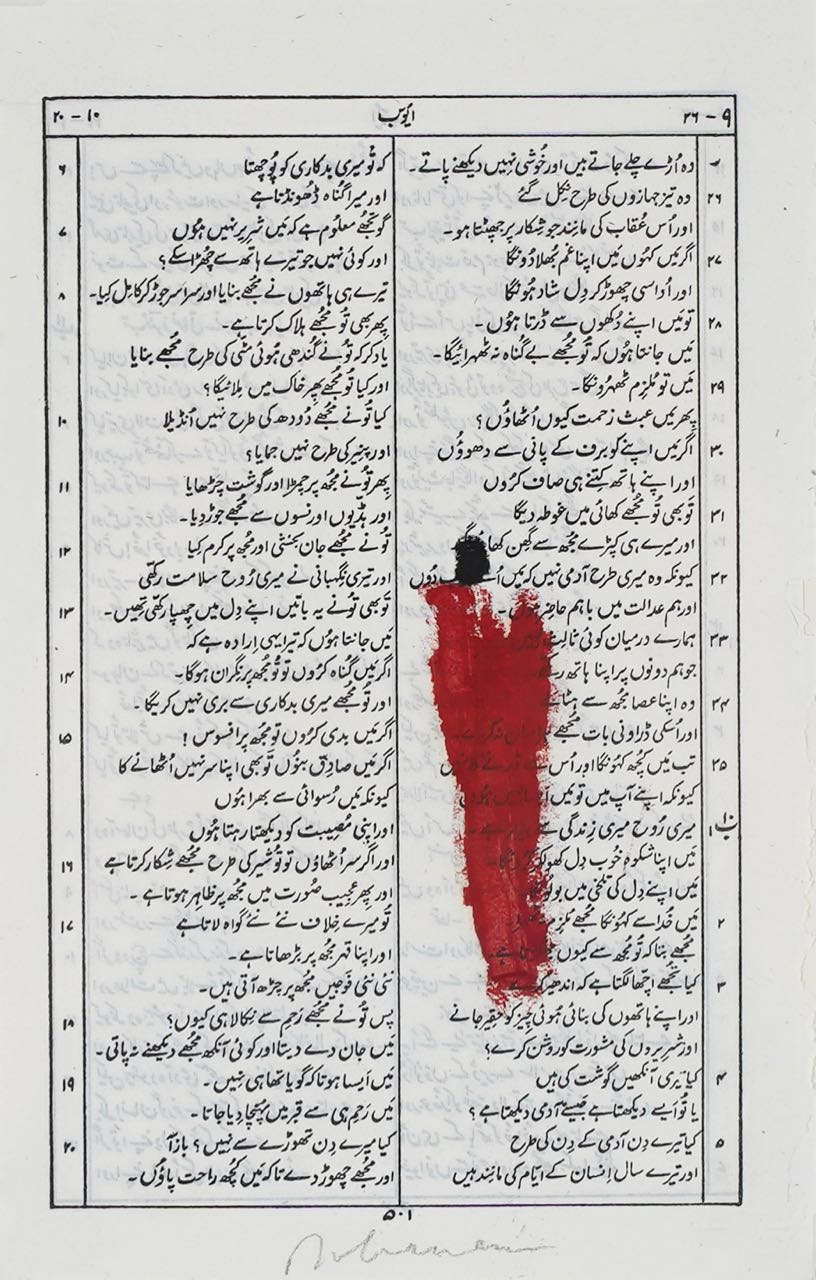 ۹ - ۲۶ ایُّوب ۱۰ - ۲۰
وہ اُڑے چلے جاتے ہیں اور خُوشی نہیں دیکھنے پاتے۔
۲۶ وہ تیز جہازوں کی طرح نِکل گئے
اور اُس عُقاب کی مانند جو شِکار پر جھپٹتا ہو۔
۲۷ اگر مَیں کہُوں مَیں اپنا غم بُھلا دُونگا
اور اُداسی چھوڑ کر دِل شاد ہُونگا
۲۸ تو مَیں اپنے دُکھوں سے ڈرتا ہُوں۔
مَیں جانتا ہُوں کہ تُو مُجھے بے گُناہ نہ ٹھہرائیگا۔
۲۹ مَیں تو مُلزم ٹھہرُونگا۔
پِھر مَیں عبث زحمت کیوں اُٹھاؤُں؟
۳۰ اگر مَیں اپنے کو برف کے پانی سے دھوؤُں
اور اپنے ہاتھ کِتنے ہی صاف کرُوں
۳۱ تَو بھی تُو مُجھے کھائی میں غوطہ دیگا
اور میرے ہی کپڑے مُجھ سے گِھن کھا
۳۲ کیونکہ وہ میری طرح آدمی نہیں کہ مَیں دُوں
اور ہم عدالت میں باہم حاضِر ہوں۔
۳۳ ہمارے درمیان کوئی ثالِث نہیں
جو ہم دونوں پر اپنا ہاتھ رکھے۔
۳۴ وہ اپنا عصا مُجھ سے ہٹا لے
اور اُسکی ڈراونی بات مُجھے نہ کرے۔
۳۵ تب مَیں کُچھ کہُونگا اور اُس سے ڈرنے کا نہیں
کیونکہ اپنے آپ میں تو مَیں ایسا نہیں ہُوں
باب ۱۰ ۱ میری رُوح میری زِندگی سے بیزار ہے۔
مَیں اپنا شکوہ خُوب دِل کھولکر کرُونگا۔
مَیں اپنے دِل کی تلخی میں بولُونگا
۲ مَیں خُدا سے کہُونگا مُجھے مُلزم نہ ٹھہرا
مُجھے بتا کہ تُو مُجھ سے کیوں جھگڑتا ہے۔
۳ کیا تُجھے اچّھا لگتا ہے کہ اندھیر کرے
اور اپنے ہاتھوں کی بنائی ہُوئی چِیز کو حقِیر جانے
اور شرِیروں کی مشورت کو روشن کرے؟
۴ کیا تیری آنکھیں گوشت کی ہیں
یا تُو اَیسے دیکھتا ہے جَیسے آدمی دیکھتا ہے؟
۵ کیا تیرے دِن آدمی کے دِن کی طرح
اور تیرے سال اِنسان کے ایّام کی مانِند ہیں
۶ کہ تُو میری بدکاری کو پُوچھتا
اور میرا گُناہ ڈُھونڈتا ہے
۷ گو تُجھے معلُوم ہے کہ مَیں شرِیر نہیں ہُوں
اور کوئی نہیں جو تیرے ہاتھ سے چُھڑا سکے؟
۸ تیرے ہی ہاتھوں نے مُجھے بنایا اور سراسر جوڑ کر کامِل کِیا۔
پِھر بھی تُو مُجھے ہلاک کرتا ہے۔
یاد کر کہ تُو نے گُندھی ہُوئی مٹّی کی طرح مُجھے بنایا
اور کیا تُو مُجھے پِھر خاک میں مِلائیگا؟
۱۰ کیا تُو نے مُجھے دُودھ کی طرح نہیں اُنڈیلا
اور پنِیر کی طرح نہیں جمایا؟
۱۱ پِھر تُو نے مُجھ پر چمڑا اور گوشت چڑھایا
اور ہڈّیوں اور نسوں سے مُجھے جوڑ دِیا۔
۱۲ تُو نے مُجھے جان بخشی اور مُجھ پر کرم کِیا
اور تیری نِگہبانی نے میری رُوح سلامت رکھّی
۱۳ تَو بھی تُو نے یہ باتیں اپنے دِل میں چِھپا رکھّی تھیں۔
مَیں جانتا ہُوں کہ تیرا یہی اِرادہ ہے کہ
۱۴ اگر مَیں گُناہ کرُوں تو تُو مُجھ پر نِگران ہوگا۔
اور تُو مُجھے میری بدکاری سے بری نہیں کریگا۔
۱۵ اگر مَیں بدی کرُوں تو مُجھ پر افسوس!
اگر مَیں صادِق بنُوں تَو بھی اپنا سر نہیں اُٹھانے کا
کیونکہ مَیں رُسوائی سے بھرا ہُوں
اور اپنی مُصِیبت کو دیکھتا رہتا ہُوں
۱۶ اور اگر سر اُٹھاؤں تو تُو شیر کی طرح مُجھے شِکار کرتا ہے
اور پِھر عجِیب صُورت میں مُجھ پر ظاہِر ہوتا ہے۔
۱۷ تُو میرے خِلاف نئے نئے گواہ لاتا ہے
اور اپنا قہر مُجھ پر بڑھاتا ہے۔
نئی نئی فَوجیں مُجھ پر چڑھ آتی ہیں۔
۱۸ پس تُو نے مُجھے رَحِم سے نِکالا ہی کیوں؟
مَیں جان دے دیتا اور کوئی آنکھ مُجھے دیکھنے نہ پاتی۔
۱۹ مَیں اَیسا ہوتا کہ گویا تھا ہی نہیں۔
مَیں رَحِم ہی سے قبر میں پہُنچا دِیا جاتا۔
۲۰ کیا میرے دِن تھوڑے سے نہیں؟ باز آ
اور مُجھے چھوڑ دے تاکہ مَیں کُچھ راحت پاؤُں۔
۵۰۱